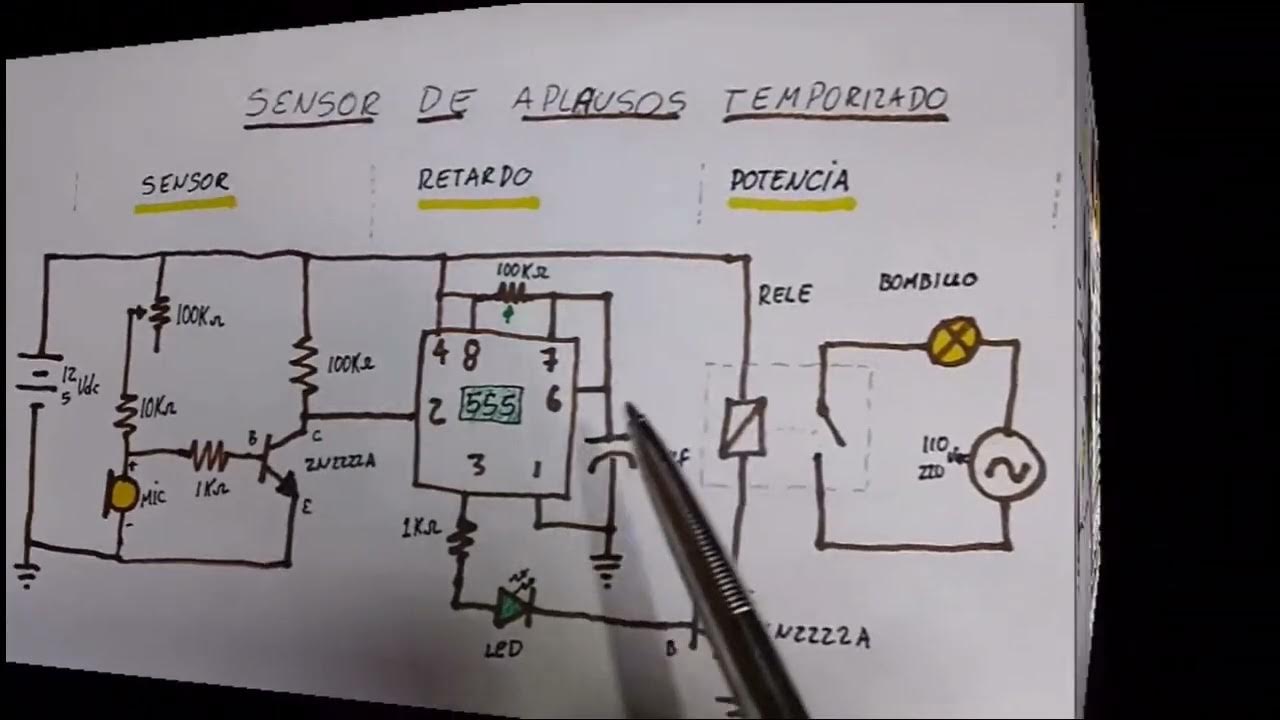 SENSOR DE APLAUSOS TEMPORIZADO
SENSOR
RETARDO
POTENCIA
100KΩ
RELE
BOMBILLO
100KΩ
100KΩ
4 8 7
12
5 Vdc
10KΩ
2 555 6
B C
2N2222A
110
220 Vac
+
MIC
-
1KΩ
E
3 1
1KΩ
LED
B
2N2222A